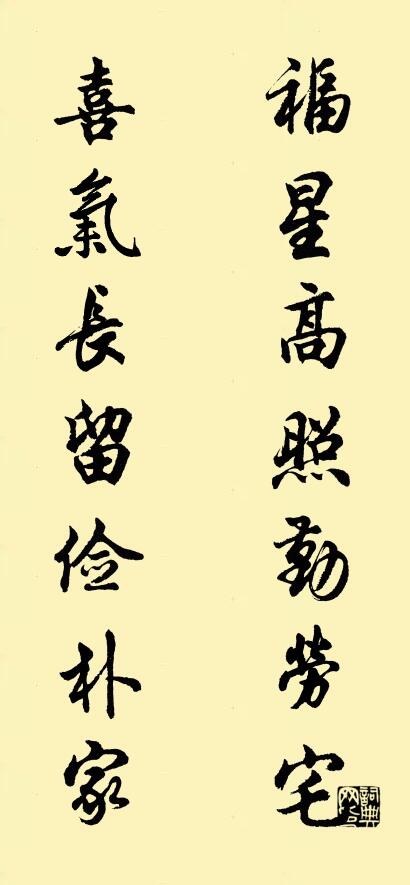 福星高照勤勞宅
喜氣長留俭朴家
詞典网